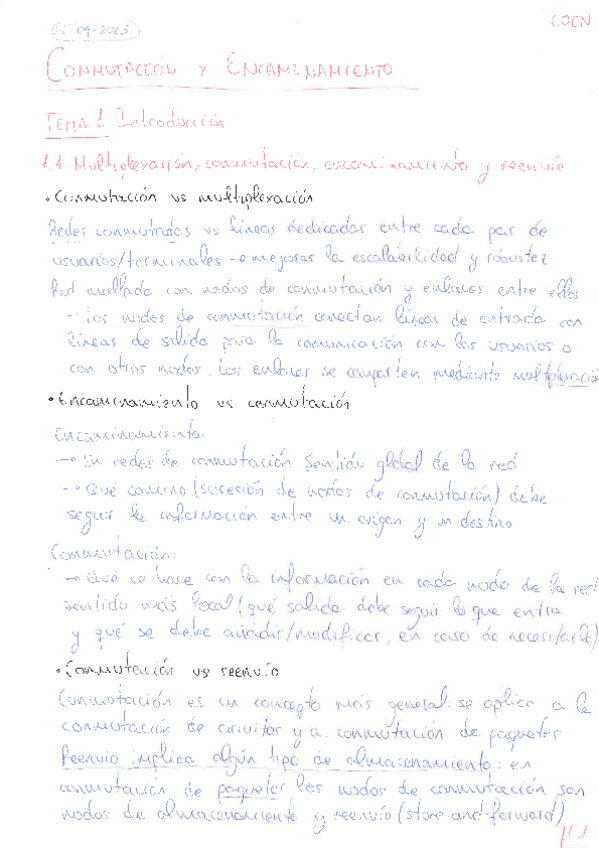 09-2025
CJCN
CONMUTACIÓN Y ENCAMINAMIENTO
TEMA 1: Introducción
1.1 Multiplexación, conmutación, encaminamiento y reenvío
• Conmutación vs multiplexación
Redes conmutadas vs líneas dedicadas entre cada par de
usuarios/terminales → mejoras la escalabilidad y robustez
Red mallada con nodos de conmutación y enlaces entre ellos
→ Los nodos de conmutación conectan líneas de entrada con
líneas de salida para la comunicación con los usuarios o
con otros nodos. Los enlaces se comparten mediante multiplexación
• Encaminamiento vs conmutación
Encaminamiento:
→ En redes de conmutación sentido global de la red
→ Qué camino (sucesión de nodos de conmutación) debe
seguir la información entre un origen y un destino
Conmutación:
→ Qué se hace con la información en cada nodo de la red
sentido más local (qué salida debe seguir lo que entra
y qué se debe añadir/modificar, en caso de necesitarlo)
• Conmutación vs reenvío
Conmutación es un concepto más general: se aplica a la
conmutación de circuitos y a conmutación de paquetes
Reenvío implica algún tipo de almacenamiento: en
conmutación de paquetes los nodos de conmutación son
nodos de almacenamiento y reenvío (store-and-forward)